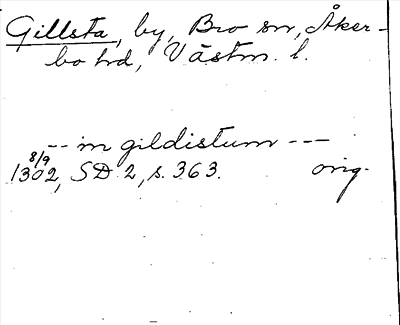 Gillsta, by, Bro sn, Åker-
bo hd, Västm. l.
-- in gildistum ---
8/9
1302, SD 2, s. 363. orig.